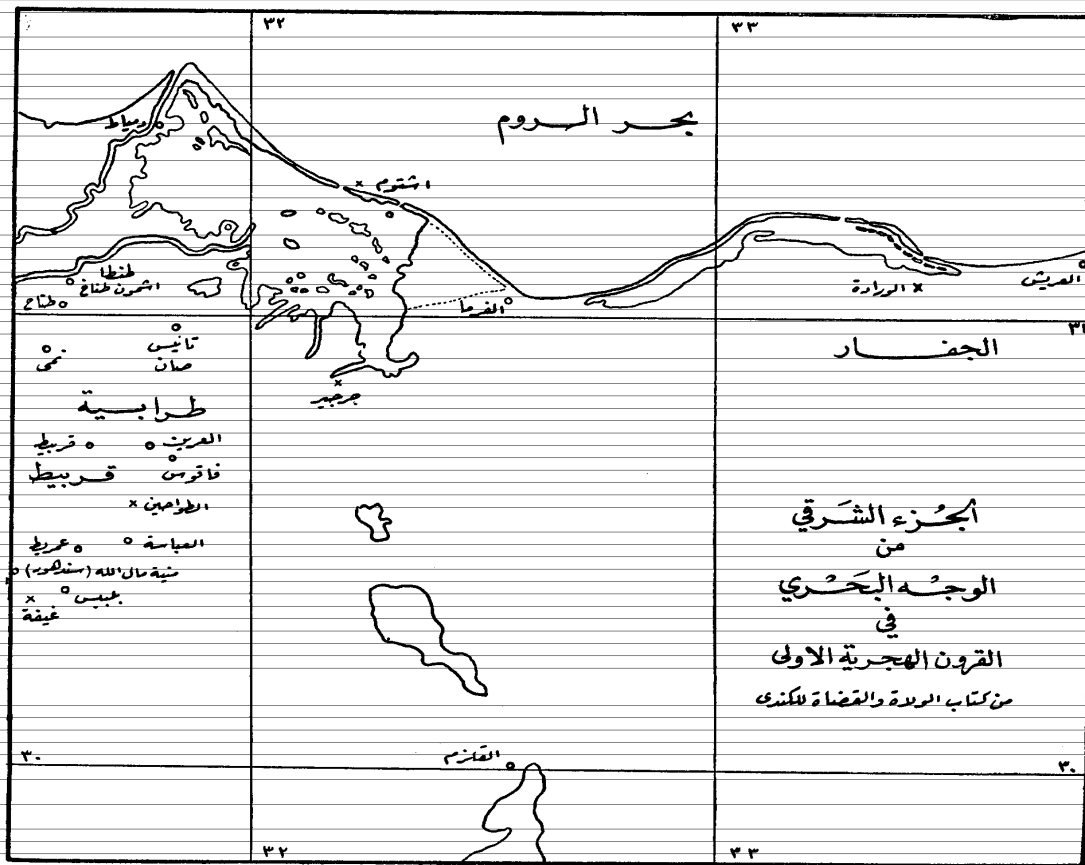 ٣٢
٣٣
بحر الروم
دمياط
اشتوم
العريش
الورادة
الفرما
طنطا
اشمون طناخ
طناح
٣١
الجفار
تانيس
صان
نمى
جرجير
طرابية
العرين
قربيط
فاقوس
قربيط
الطواحين
العباسة
عمريط
منية مال الله (سندهور)
بلبيس
غيفة
الجُزء الشَرقي
من
الوجْه البَحْري
في
القرون الهجرية الاولى
من كتاب الولاة والقضاة للكندى
٣٠
القلزم
٣٠
٣٢
٣٣